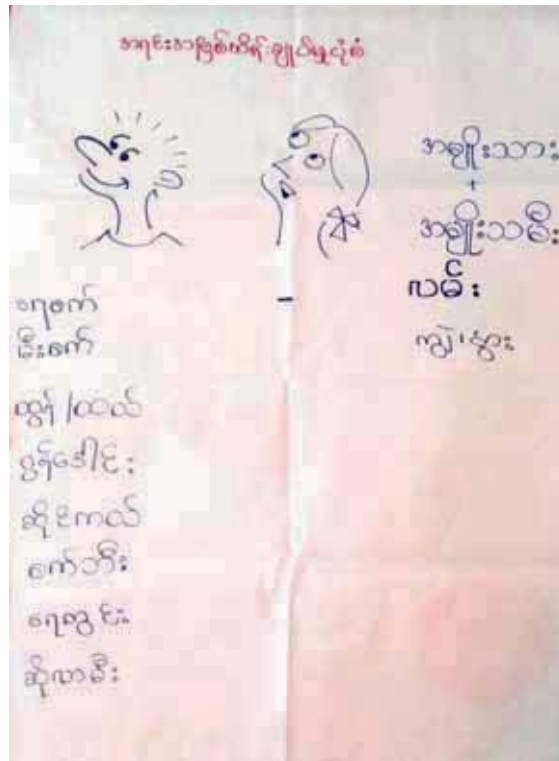 အရင်းအမြစ်ထိန်းချုပ်မှုပုံစံ
အမျိုးသား
+
အမျိုးသမီး
ရေစက် - လမ်း
မီးစက် ကျွဲ၊နွား
ထွန်/ထယ်
စွန်ဒေါင်း
ဆိုင်ကယ်
စက်ဘီး
ရေတွင်း
ဆိုလာမီး